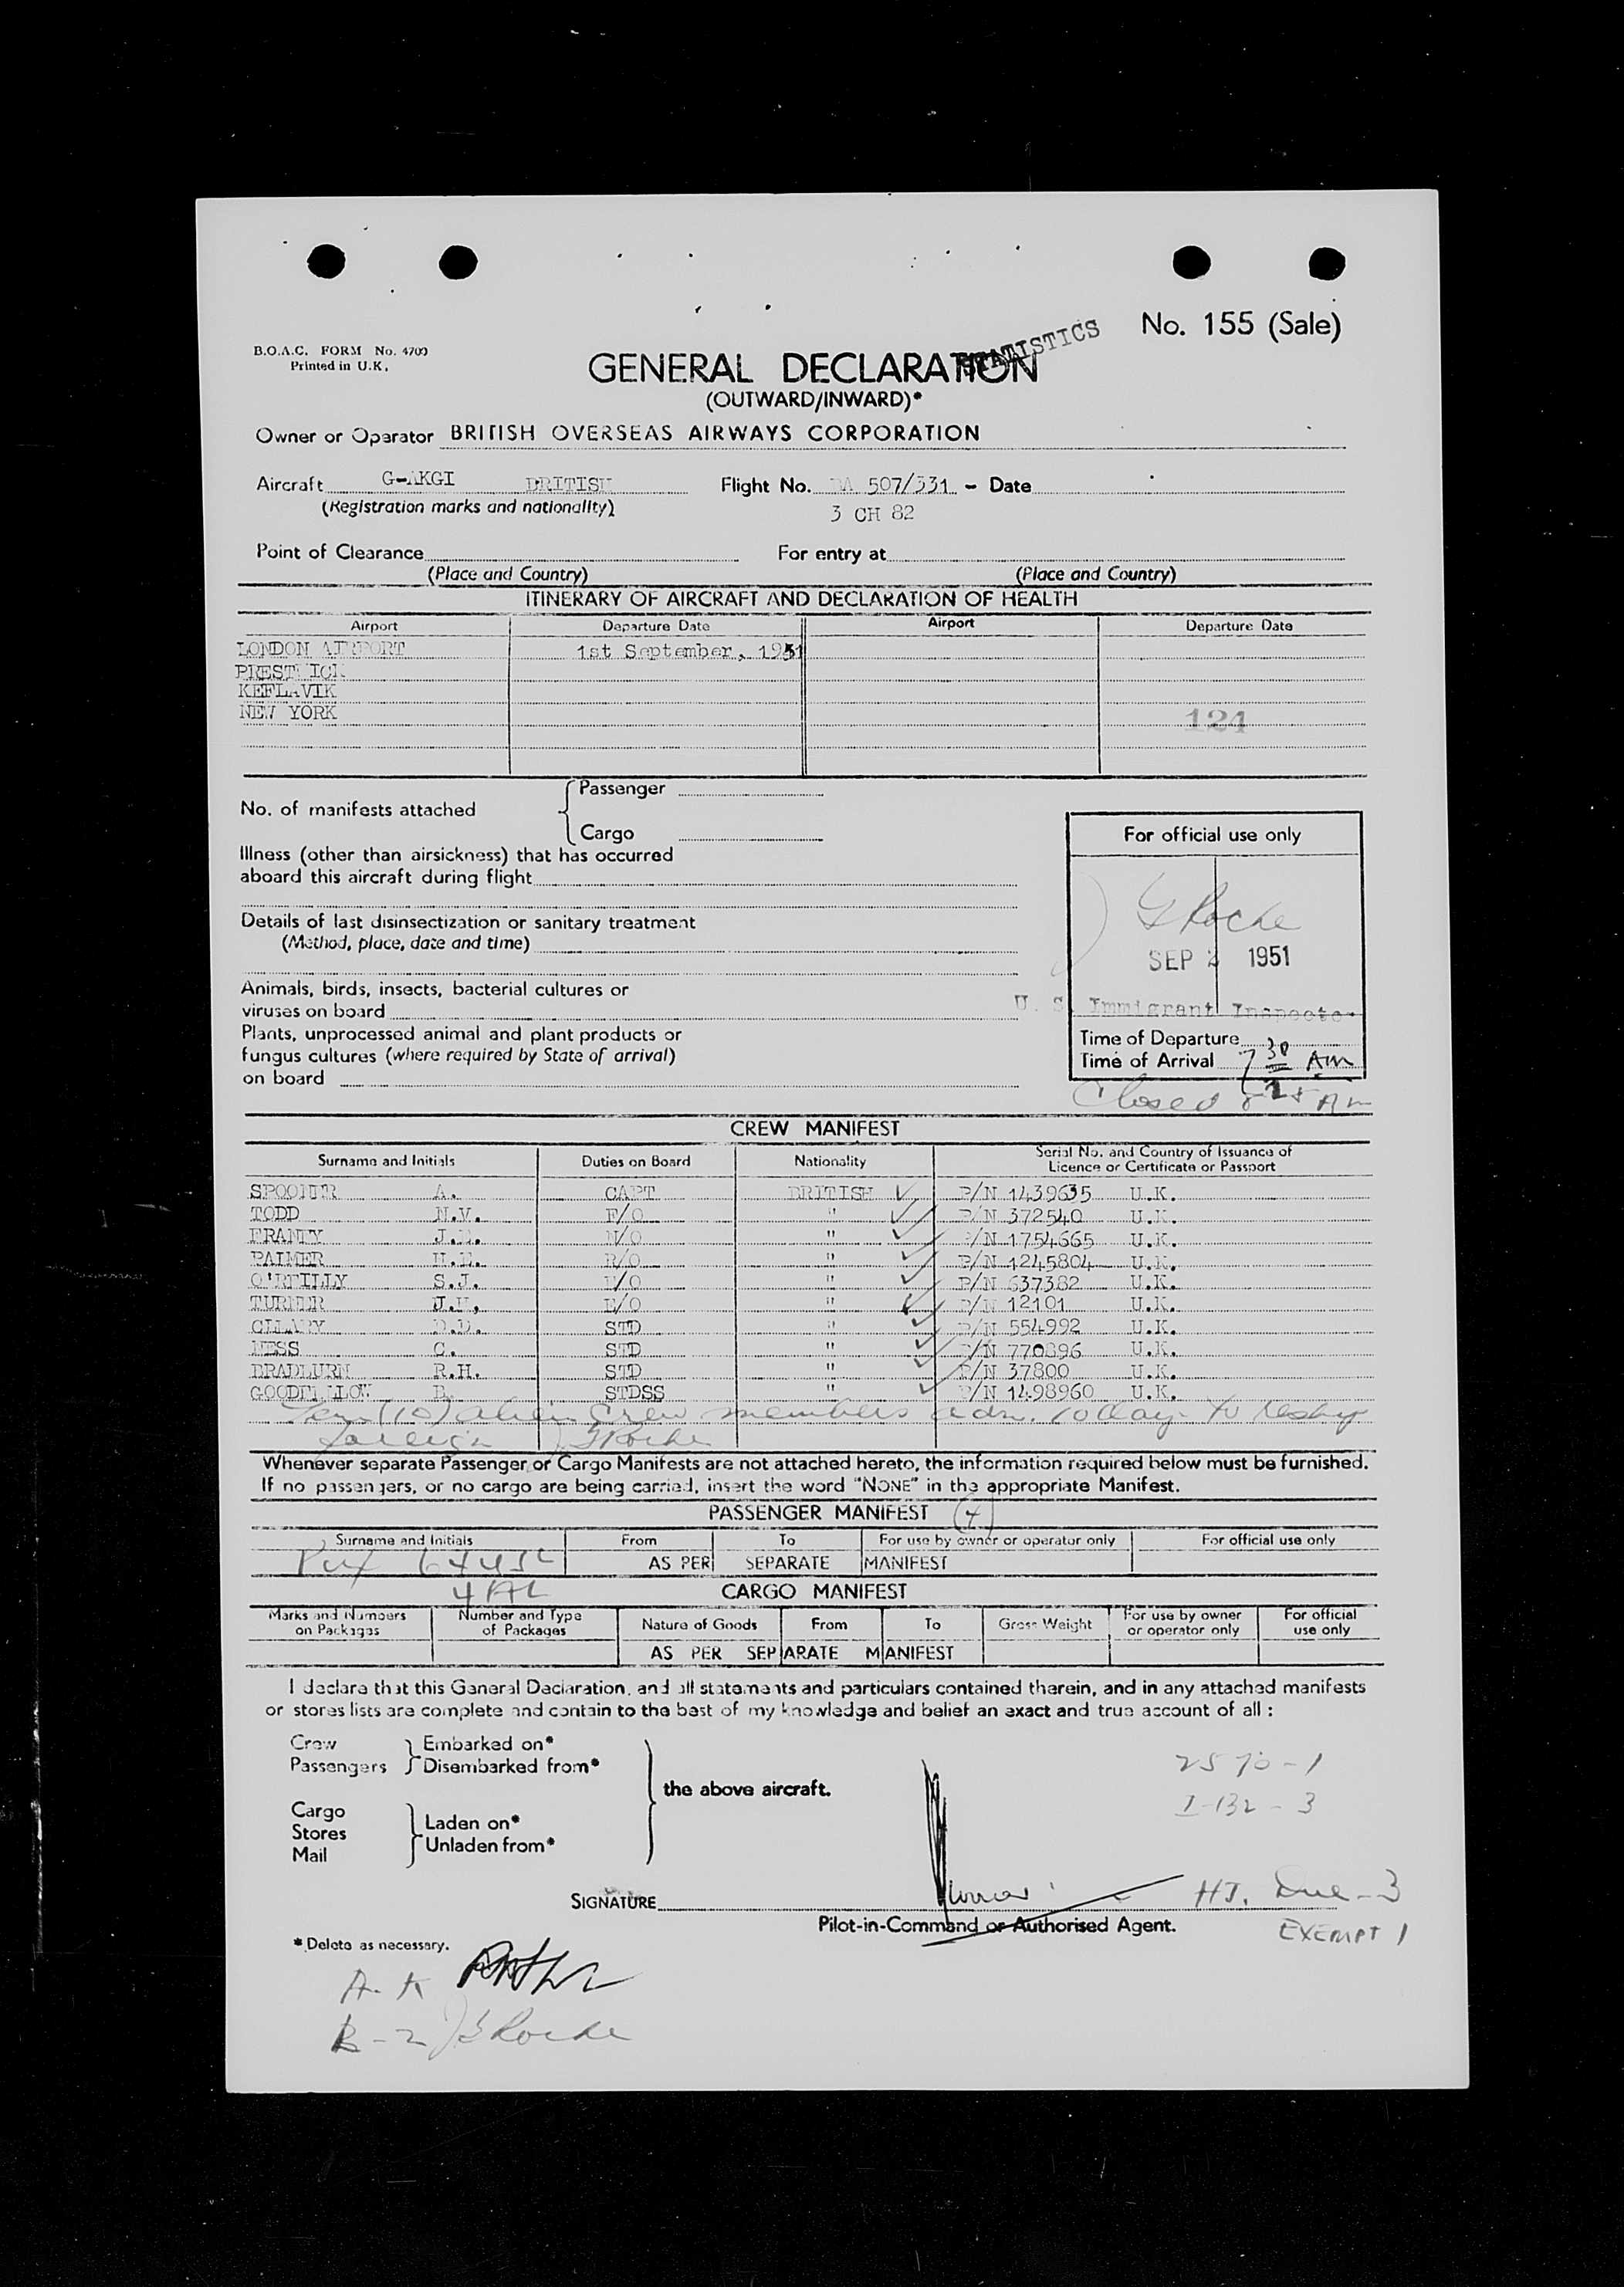 No. 155 (Sale)
B.O.A.C. FORM No. 4700
Printed in U.K.
STATISTICS
GENERAL DECLARATION
(OUTWARD/INWARD)*
Owner or Operator BRITISH OVERSEAS AIRWAYS CORPORATION
Aircraft G-AKGI BRITISH Flight No. BA 507/331 - Date
(Registration marks and nationality) 3 CH 82
Point of Clearance For entry at
(Place and Country) (Place and Country)
ITINERARY OF AIRCRAFT AND DECLARATION OF HEALTH
Airport Departure Date Airport Departure Date
LONDON AIRPORT 1st September, 1951
PRESTWICK
KEFLAVIK
NEW YORK 124
No. of manifests attached Passenger
Cargo
For official use only
Illness (other than airsickness) that has occurred
aboard this aircraft during flight
Details of last disinsectization or sanitary treatment
(Method, place, date and time)
Roche
SEP 2 1951
Animals, birds, insects, bacterial cultures or
viruses on board
U. S. Immigrant Inspector
Plants, unprocessed animal and plant products or
fungus cultures (where required by State of arrival)
on board
Time of Departure
Time of Arrival 7 30 AM
Closed AM
CREW MANIFEST
Surname and Initials Duties on Board Nationality Serial No. and Country of Issuance of
Licence or Certificate or Passport
SPOONER A. CAPT BRITISH P/N 1439635 U.K.
TODD N.V. F/O " P/N 372540 U.K.
J. N/O " P/N 1754665 U.K.
PALMER R/O " P/N 1245804 U.K.
O'REILLY S.J. " P/N 637382 U.K.
TURNER E/O " P/N 12101 U.K.
CLEARY D.D. STD " P/N 554992 U.K.
C. STD " P/N 770896 U.K.
BRADBURN R.H. STD " P/N 37800 U.K.
GOODFELLOW B. STDSS " P/N 1498960 U.K.
Ten (10) alien crew members adm. 10 days to reship
foreign Roche
Whenever separate Passenger or Cargo Manifests are not attached hereto, the information required below must be furnished.
If no passengers, or no cargo are being carried, insert the word "NONE" in the appropriate Manifest.
PASSENGER MANIFEST
Surname and Initials From To For use by owner or operator only For official use only
AS PER SEPARATE MANIFEST
CARGO MANIFEST
Marks and Numbers on Packages Number and Type of Packages Nature of Goods From To Gross Weight For use by owner or operator only For official use only
AS PER SEPARATE MANIFEST
I declare that this General Declaration, and all statements and particulars contained therein, and in any attached manifests
or stores lists are complete and contain to the best of my knowledge and belief an exact and true account of all :
Crew Embarked on*
Passengers Disembarked from*
the above aircraft.
Cargo
Stores Laden on*
Mail Unladen from*
I-132 - 3
SIGNATURE
Pilot-in-Command or Authorised Agent.
HT. Due - 3
EXEMPT 1
* Delete as necessary.
A. K
B-2 Roche